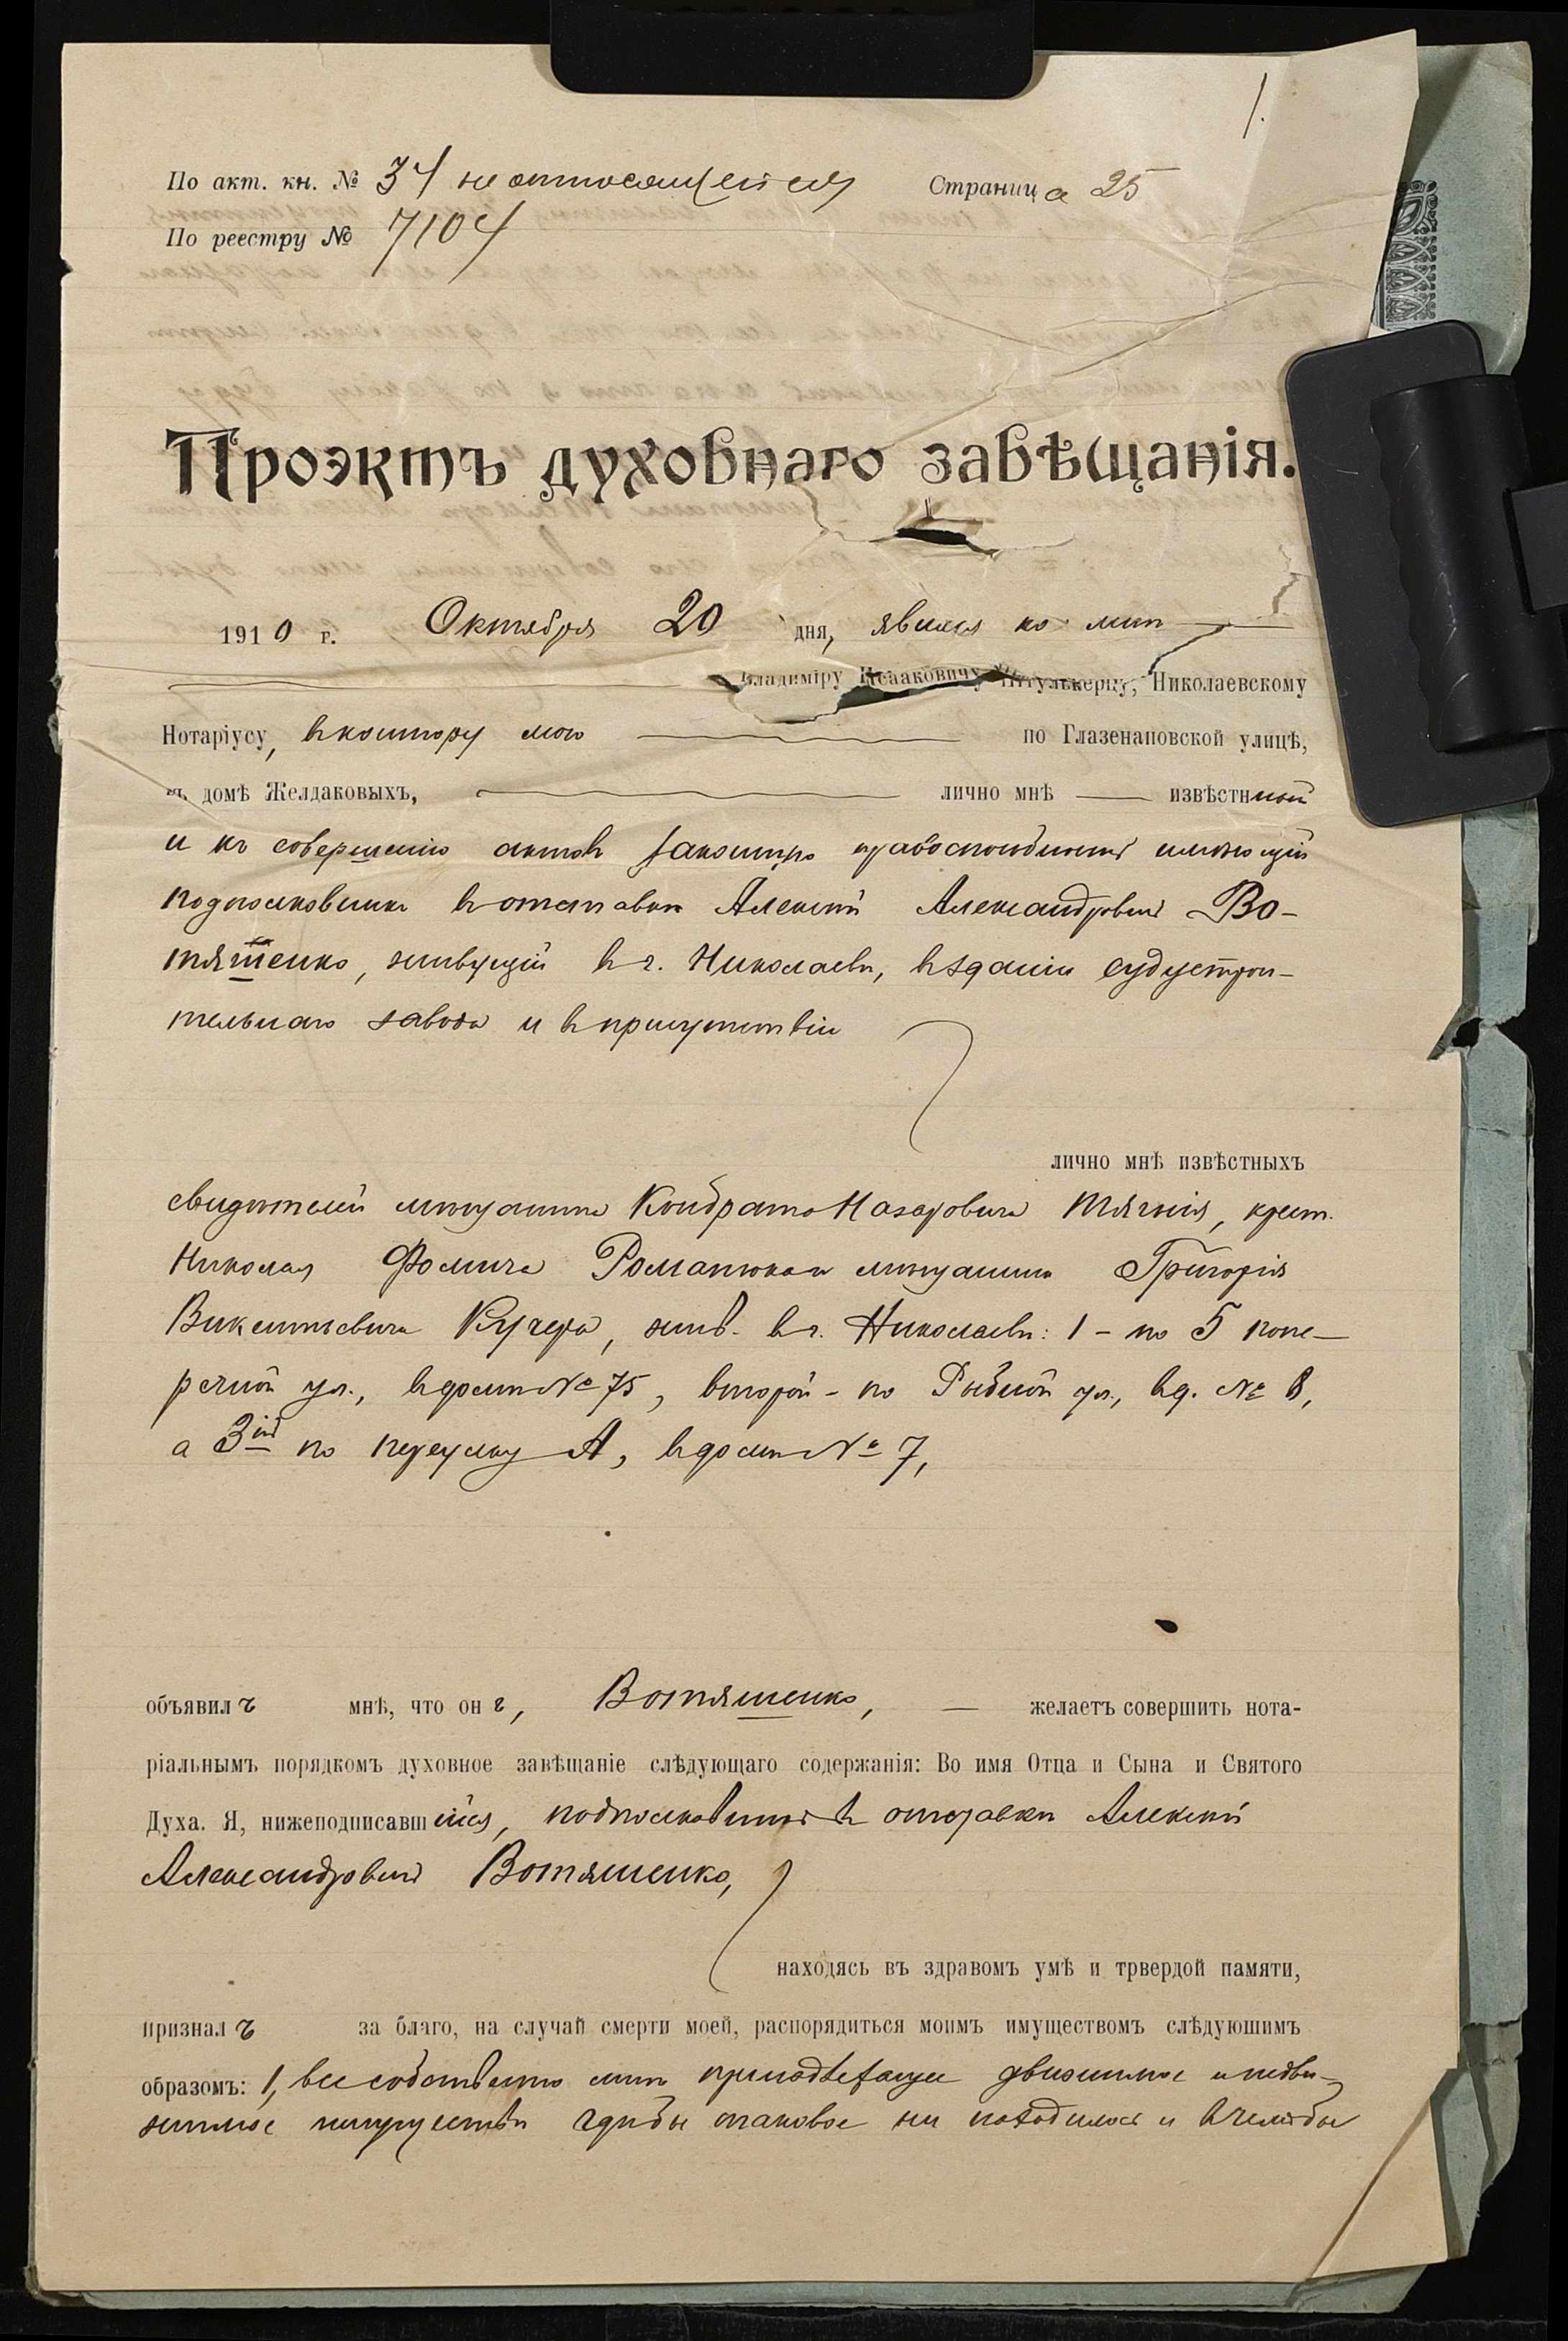 1.
По акт. кн. № 34 не относящейся Страница 25
По реестру № 7104
Проэктъ духовнаго завѣщанія.
1910 г. Октября 20 дня, явился ко мнѣ
Владиміру Исааковичу Штулькерцу, Николаевскому
Нотаріусу, въ контору мою по Глазенаповской улицѣ,
въ домѣ Желдаковыхъ, лично мнѣ извѣстный
и къ совершенію актовъ законную правоспособность имѣющій
подполковникъ въ отставкѣ Алексѣй Александровичъ Во-
тяшенко, живущій въ г. Николаевѣ, въ зданіи судустрои-
тельнаго завода и въ присутствіи
лично мнѣ извѣстныхъ
свидѣтелей мѣщанина Кондрата Назаровича Тягнія, крест.
Николая Фомича Романюка и мѣщанина Григорія
Викентьевича Кучера, жив. въ г. Николаевѣ: 1 - по 5 попе-
речной ул., въ домѣ № 75, второй - по Рыбной ул., въ д. № 8,
а 3ій по переулку А, въ домѣ № 7,
объявилъ мнѣ, что онъ, Вотяшенко, — желаетъ совершить нота-
ріальнымъ порядкомъ духовное завѣщаніе слѣдующаго содержанія: Во имя Отца и Сына и Святого
Духа. Я, нижеподписавшійся, подполковникъ въ отставкѣ Алексѣй
Александровичъ Вотяшенко,
находясь въ здравомъ умѣ и трвердой памяти,
призналъ за благо, на случай смерти моей, распорядиться моимъ имуществомъ слѣдуюшимъ
образомъ: 1, все собственно мнѣ принадлежащее движимое и недви-
жимое имущество гдѣ бы таковое ни находилось и въ чемъ бы